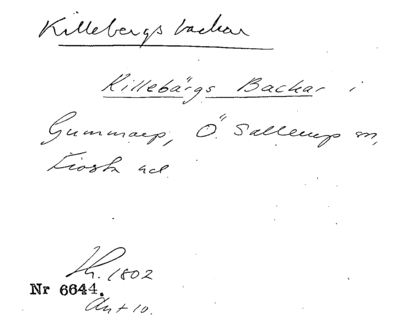 Killebergs backar
Killebärgs Backar i
Gummarp, Ö. Sallerup m,
Th. 1802
Nr 6644.
Ant 10.